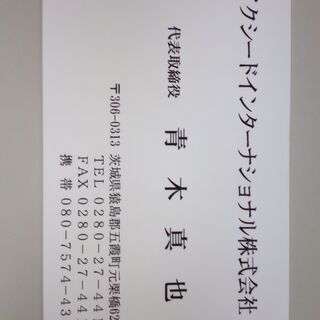 クシードインターナショナル株式会社
代表取締役 青木真也
〒306-0313 茨城県猿島郡五霞町元栗橋62
TEL 0280-27-44
FAX 0280-27-44
携帯 080-7574-43